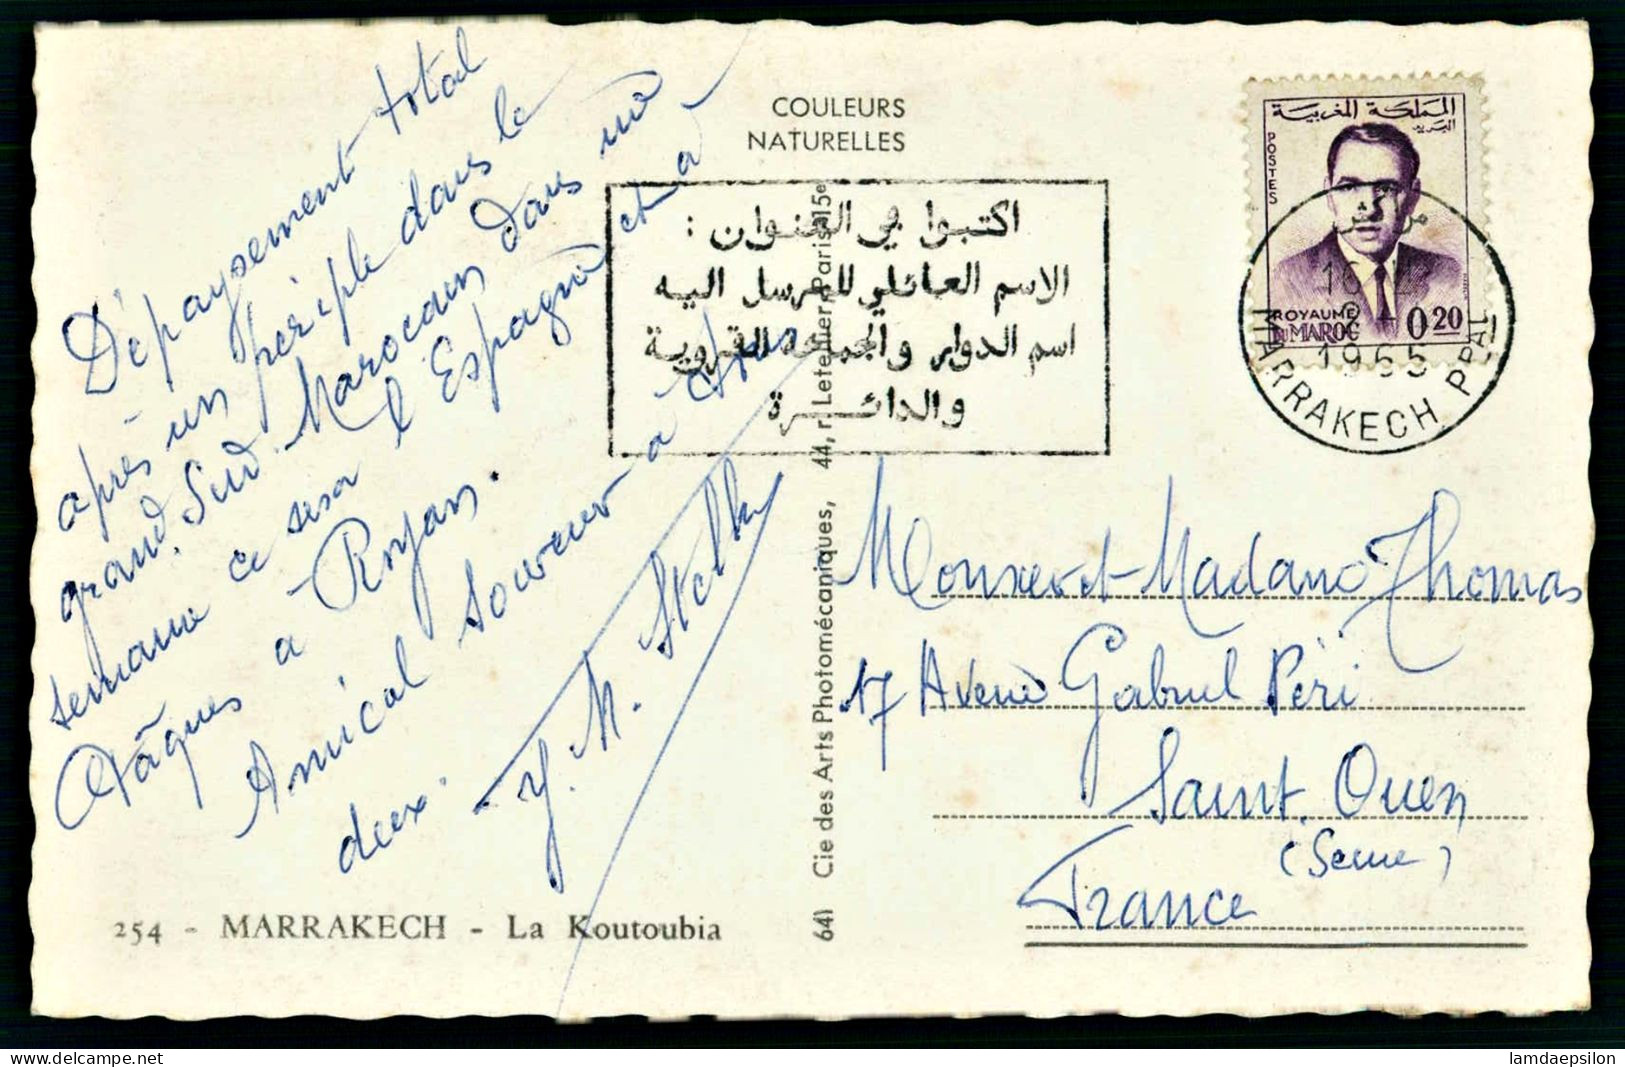 COULEURS
NATURELLES
اكتبوا في العنوان :
الاسم العائلي للمرسل اليه
اسم الدوار والجماعة القروية
والدائرة
المملكة المغربية
البريد
POSTES
ROYAUME
DU MAROC 0.20
مراكش
1965
MARRAKECH PPAL
Dépaysement total
après un périple dans le
grand Sud. Marocain Dans une
semaine ce sera l'Espagne et à
Pâques à Royan.
Amical souvenir à tous
deux.
Monsieur et Madame Thomas
17 Avenue Gabriel Péri
Saint. Ouen
(Seine)
France
254 - MARRAKECH - La Koutoubia
64) Cie des Arts Photomécaniques, 44, r. Letellier, Paris-15e
lamdaepsilon